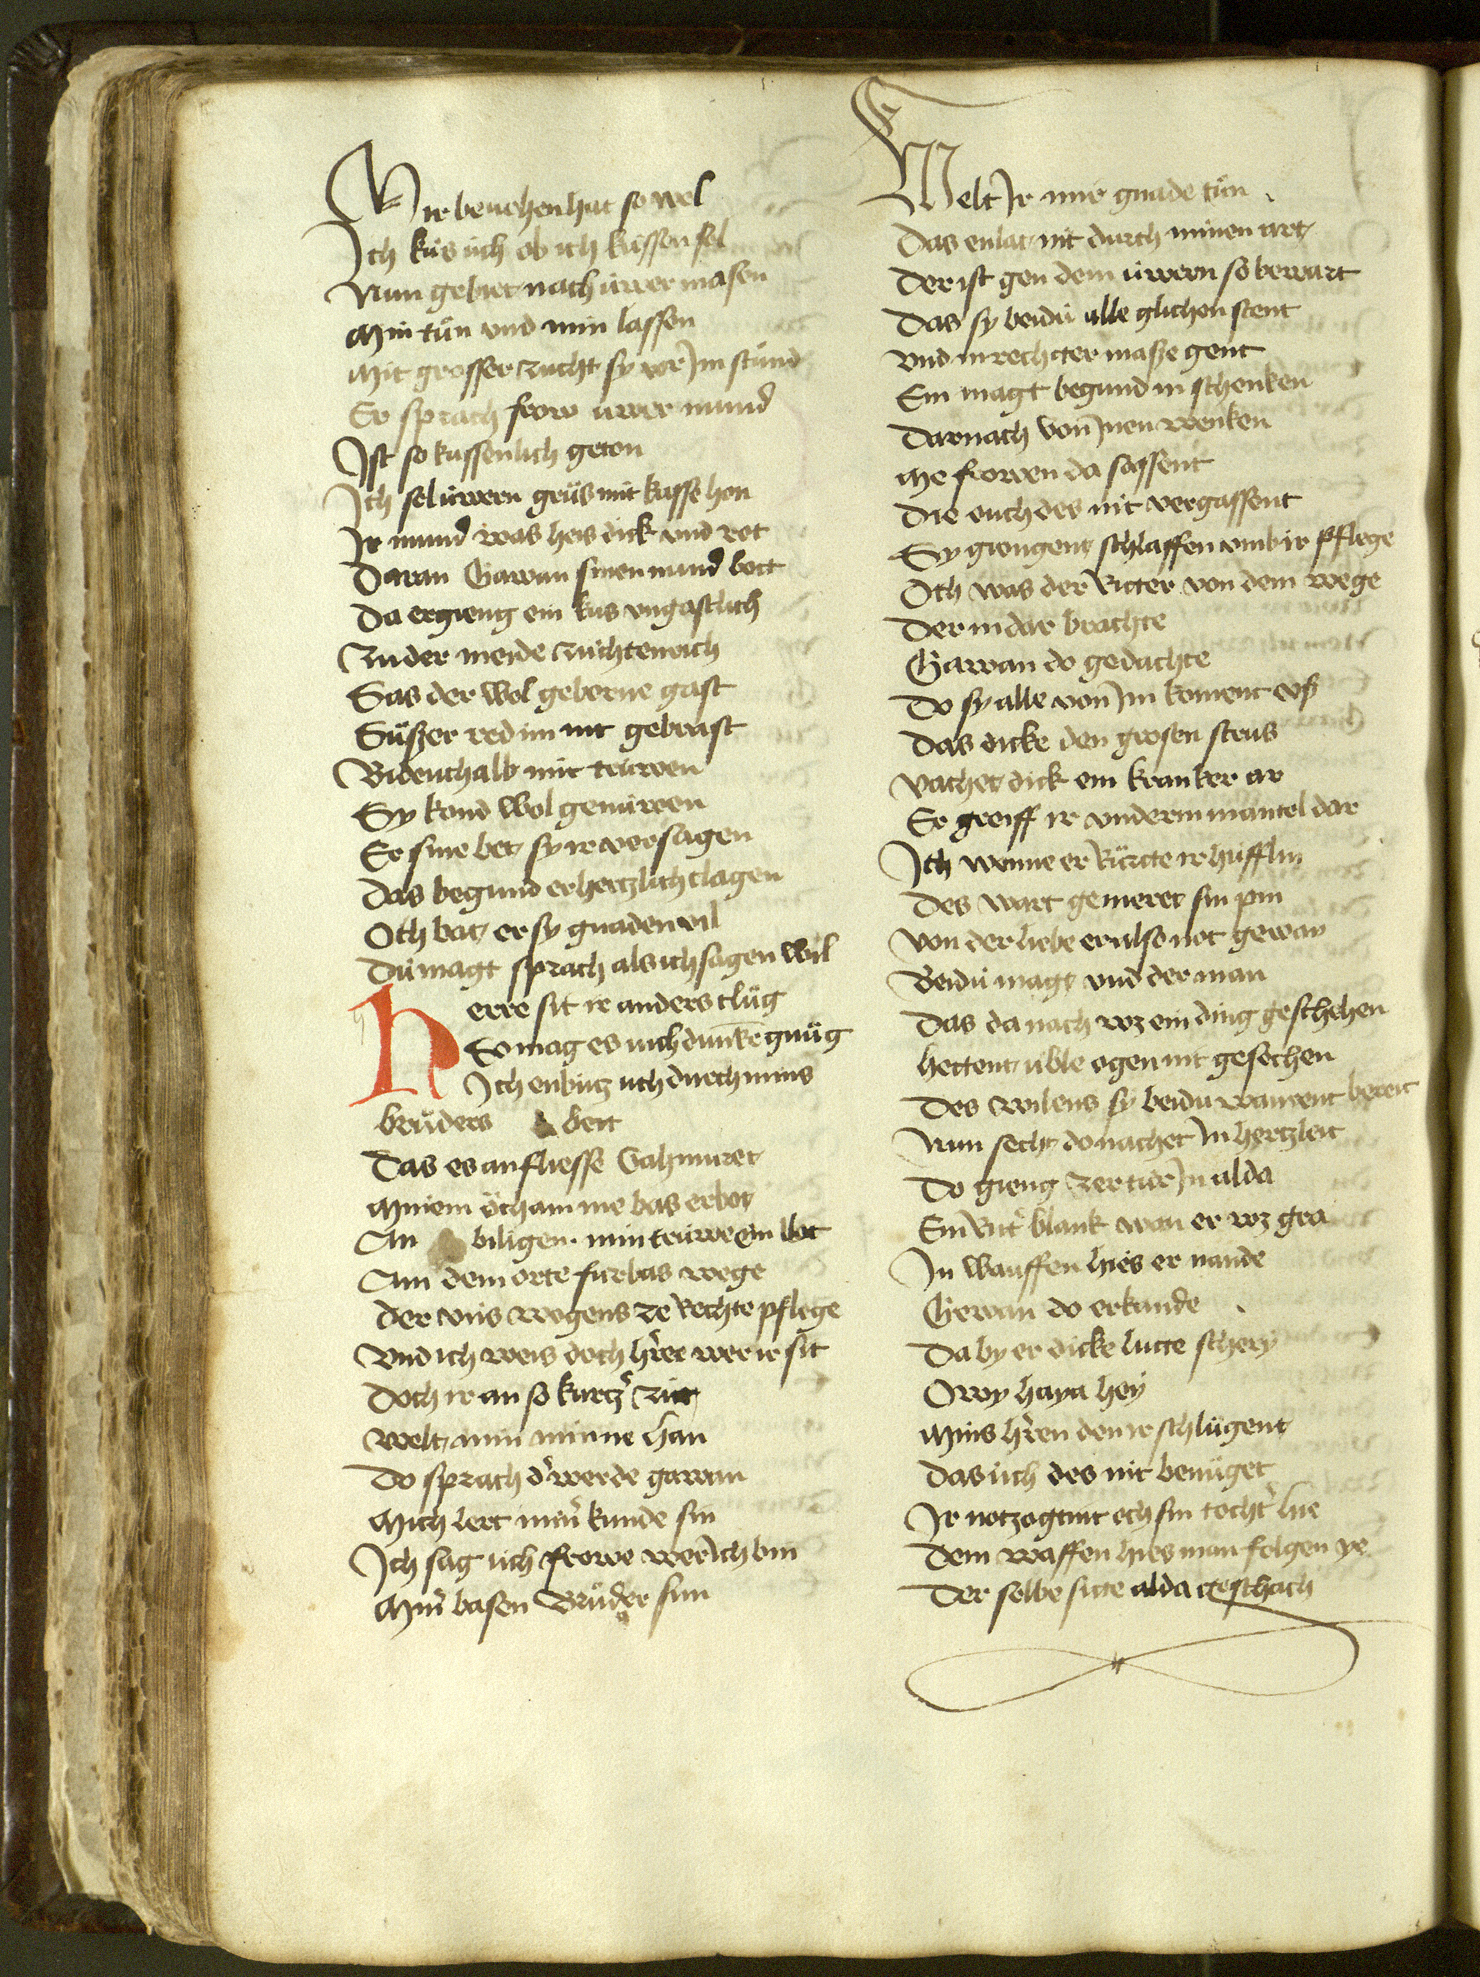 Mir benehen hat so wol
Ich küs üch ob ich küssen sol
Nun gebiet nach üwer masen
Min tün vnd min lassen
Mit grosser zucht sy vor Im stünd
Er sprach frow üwer mund
Ist so kussenlich geton
Ich sol üwern grüs mit kusse hon
Ir mund was heis dick vnd rot
Daran Gawan sinen mund bott
Da ergieng ein kus vngastlich
Zu der meide zuchtenrich
Sas der wol geborne gast
Süszer red im nit gebrast
Bidenthalb mit trüwen
Sy kond wol genüwen
Er sine bet sy ir versagen
Das begund er hertzlich clagen
Och bat er sy gnaden vil
Dü magt sprach als ich sagen wil
Herre sit ir anders clüg
So mag es üch dunken gnüg
Ich enbütz üch durch mins
brüders bett
Das es anfliesse Gahmuret
Minem öcham nie bas erbot
An biligen min trüwe ein lot
An dem orte fürbas wege
Der vns wogens ze rechte pflege
Vnd ich weis doch hre wer ir sit
Doch ir an so kurtzer zit
Welt min minne han
Do sprach der werde gawan
Mich lert miner kunde sin
Ich sag üch frowe wer Ich bin
Miner basen Brüder sun
Welt Ir mir gnade tün
Das enlat nit durch minen art
Der ist gen dem üwern so bewart
Das sy beidü alle glichen stent
Vnd in rechter masze gent
Ein magt begund in schenken
Darnach von Inen wenken
Me frowen da sassent
Die ouch des nit vergassent
Sy giengent schlaffen vmb ir pflege
Och was der Ritter von dem wege
Der in dar brachte
Gawan do gedachte
Do sy alle von Im koment vsz
Das dicke den grosen strus
Vachet dick ein kranker ar
Er greiff ir vnderm mantel dar
Ich wenne er Rürte ir hüfflin
Des wart gemeret sin pin
Von der liebe er also not gewan
Beidü magt vnd der man
Das da nach wz ein ding geschehen
Hettent üble ogen nit gesechen
Des willens sy beidü warent bereit
Nun secht do nachet In hertzleit
Do gieng zer tür In alda
Ein Ritter blank wan er wz gra
In wauffen hies er nande
Gewan do erkande
Da by er dicke lutte schery
Owy haya hey
Mins hren den ir schlügent
Das üch des nit benüget
Ir notzogent och sin tochter hie
Dem waffen hies man folgen ye
Der selbe sitte alda geschach